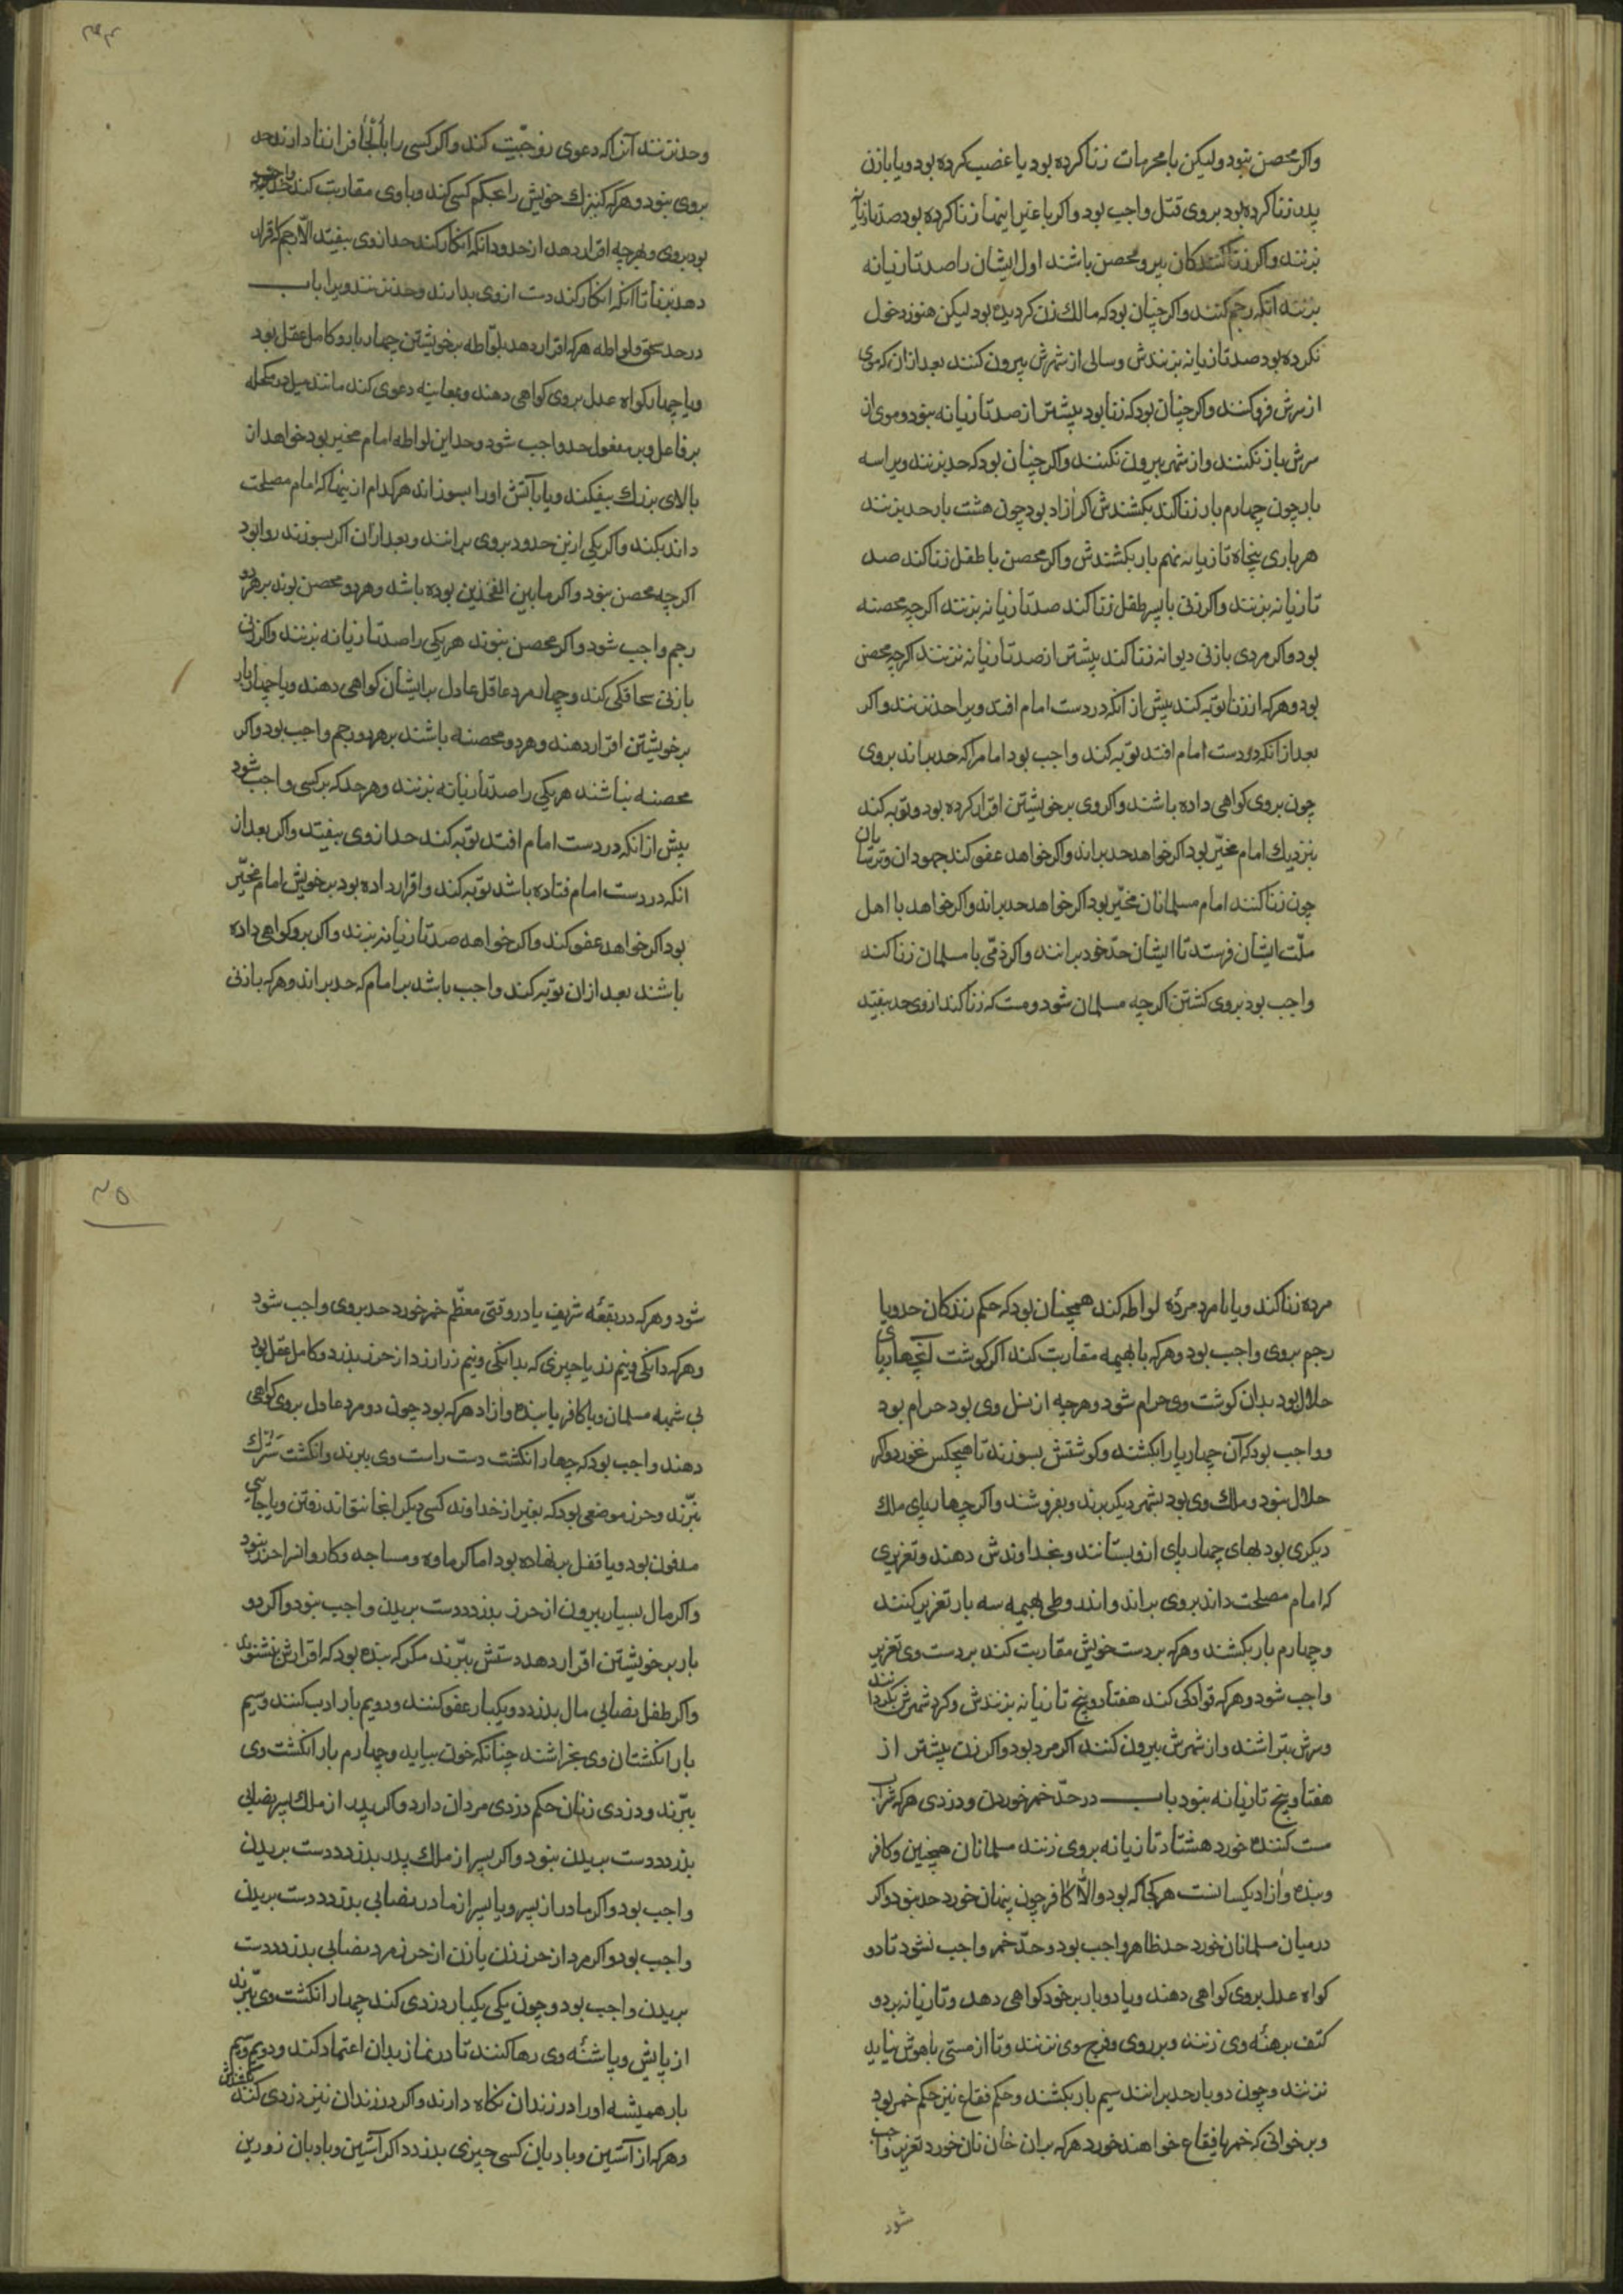 واکر محصن نبود ولیکن با محرمات زنا کرده بود یا غصب کرده بود ویا بازن
پدر زنا کرده بود بروی قتل واجب بود واکر با غیر اینها زنا کرده بود صد تازیانه
بزنند واکر زنا کنندکان پیر ومحصن باشند اول ایشان را صد تازیانه
بزنند انکه رجم کنند واکر چنان بود که مالک زن کردیده بود لیکن هنوز دخول
نکرده بود صد تازیانه بزنندش وسالی از شهرش بیرون کنند بعد ازان که موی
از سرش فروکنند واکر چنان بود که زنا بود بیشتر از صد تازیانه نبود وموی از
سرش باز نکنند واز شهر بیرون نکنند واکر چنان بود که حد بزنند ویرا سه
بار چون چهارم بار زنا کند بکشندش اکر ازاد بود چون هشت بار حد بزنند
هر باری پنجاه تازیانه نهم بار بکشندش واکر محصن با طفل زنا کند صد
تازیانه بزنند واکر زنی با پسر طفل زنا کند صد تازیانه بزنند اکرچه محصنه
بود واکر مردی بازنی دیوانه زنا کند بیشتر از صد تازیانه نزنند اکرچه محصن
بود وهرکه از زنا توبه کند پیش از آنکه در دست امام افتد ویرا حد نزنند واکر
بعد از انکه در دست امام افتد توبه کند واجب بود امام را که حد براند بروی
چون بروی کواهی داده باشند واکر وی برخویشتن اقرار کرده بود وتوبه کند
بنزدیک امام مخیّر بود اکر خواهد حد براند واکر خواهد عفو کند جهودان وترسایان
چون زنا کنند امام مسلمانان مخیّر بود اکر خواهد حد براند واکر خواهد با اهل
ملّت ایشان فرستد تا ایشان حدّ خود برانند واکر ذمّی با مسلمان زنا کند
واجب بود بروی کشتن اکرچه مسلمان شود ومست که زنا کند از وی حد بیفتد
وحد نزنند آنرا که دعوی زوجیّت کند واکر کسی را بالجا فرا زنا دارند حد
بروی نبود وهرکه کنیزک خویش را بحکم کسی کند وباوی مقاربت کند حد واجب
بود بروی وبهرچه اقرار دهد از حدود انکه انکار کند حد از وی بیفتد الّا رجم که اقرار
دهد بزنا تا انکه انکار کند دست از وی بدارند وحد نزنند ویرا باب
در حد سحق ولواطه هرکه اقرار دهد بلواطه برخویشتن چهار بار وکامل عقل بود
ویا چهار کواه عدل بروی کواهی دهند وبمعاینه دعوی کند مانند میل در مکحله
بر فاعل وبر مفعول حد واجب شود وحد این لواطه امام مخیر بود خواهد از
بالای بزرک بیفکند ویا بآتش اورا بسوزاند هرکدام از اینها که امام مصلحت
داند بکند واکر یکی ازین حدود بروی برانند وبعد ازان اکر بسوزند روا بود
اکرچه محصن نبود واکر مابین الفخذین بوده باشد وهردو محصن بوند بر هر دو
رجم واجب شود واکر محصن نبوند هر یکی را صد تازیانه بزنند واکر زنی
بازنی سحاقکی کند وچهار مرد عاقل عادل برایشان کواهی دهند ویا چهار بار
برخویشتن اقرار دهند وهردو محصنه باشند بر هردو رجم واجب بود واکر
محصنه نباشند هر یکی را صد تازیانه بزنند وهر حد که بر کسی واجب شود
پیش از آنکه در دست امام افتد توبه کند حد از وی بیفتد واکر بعد از
انکه در دست امام فتاده باشد توبه کند واقرار داده بود بر خویش امام مخیّر
بود اکر خواهد عفو کند واکر خواهد صد تازیانه بزند واکر برو کواهی داده
باشند بعد ازان توبه کند واجب باشد بر امام که حد براند وهرکه بازنی
مرده زنا کند ویا با مرد مرده لواطه کند همچنان بود که حکم زندکان حد ویا
رجم بروی واجب بود وهرکه با بهیمه مقاربت کند اکر کوشت آن چهارپای
حلال بود بدان کوشت وی حرام شود وهرچه از نسل وی بود حرام بود
وواجب بود که آن چهارپا را بکشند وکوشتش بسوزند تا هیچکس نخورد واکر
حلال نبود وملک وی بود بشهر دیکر برند وبفروشند واکر چهارپای ملک
دیکری بود بهای چهارپای ازو بستانند وبخداوندش دهند وتعزیری
که امام مصلحت داند بروی براند واندر وطی بهیمه سه بار تعزیر کنند
وچهارم بار بکشند وهرکه بر دست خویش مقاربت کند بر دست وی تعزیر
واجب شود وهرکه قوادکی کند هفتاد وپنج تازیانه بزنندش وکرد شهرش بکردانند
وسرش بتراشند واز شهرش بیرون کنند اکر مرد بود واکر زن بیشتر از
هفتاد وپنج تازیانه نبود باب در حدّ خمر خوردن ودزدی هرکه شراب
مست کننده خورد هشتاد تازیانه بروی زنند مسلمانان همچنین وکافر
وبنده وازاد یکسانست هرکجا که بود والّا کافر چون پنهان خورد حد نبود واکر
در میان مسلمانان خورد حد ظاهر واجب بود وحدّ خمر واجب نشود تا دو
کواه عدل بروی کواهی دهند ویا دو بار بر خود کواهی دهد وتازیانه بر دو
کتف برهنهٔ وی زنند وبر روی وفرج وی نزنند وتا از مستی باهوش نیاید
نزنند وچون دو بار حد برانند سیم بار بکشند وحکم فقاع نیز حکم خمر بود
وبر خوانی که خمر یا فقاع خواهند خورد هرکه بران خوان نان خورد تعزیر واجب
شود
شود وهرکه در بقعهٔ شریف یا در وقتی معظّم خمر خورد حد بروی واجب شود
وهرکه دانکی ونیم زر یا چیزی که بدانکی ونیم زر ارزد از حرز بدزدد وکامل عقل بود
بی شبهه مسلمان ویا کافر یا بنده وازاد هرکه بود چون دو مرد عادل بروی کواهی
دهند واجب بود که چهار انکشت دست راست وی ببرند وانکشت سترک
نبرّند وحرز موضعی بود که بغیر از خداوند کسی دیکر انجا نتواند رفتن ویا جایی
مدفون بود ویا قفل برنهاده بود اما کرماوه ومساجد وکاروانرا حرز نبود
واکر مال بسیار بیرون از حرز بدزدد دست بریدن واجب نبود واکر دو
بار برخویشتن اقرار دهد دستش ببرّند مکر که بنده بود که اقرارش نشنوند
واکر طفل نصابی مال بدزدد ویکبار عفو کنند ودویم بار ادب کنند وسیم
بار انکشتان وی بخراشند چنانکه خون بیاید وچهارم بار انکشت وی
ببرّند ودزدی زنان حکم دزدی مردان دارد واکر پدر از ملک پسر نصابی
بدزدد دست بریدن نبود واکر پسر از ملک پدر بدزدد دست بریدن
واجب بود واکر مادر از پسر ویا پسر از مادر نصابی بدزدد دست بریدن
واجب بود واکر مرد از حرز زن یا زن از حرز مرد نصابی بدزدد دست
بریدن واجب بود وچون یکی یکبار دزدی کند چهار انکشت وی ببرّند
از پایش وپاشنهٔ وی رها کنند تا در نماز بدان اعتماد کند ودویم وسیم
بار همیشه اورا در زندان نکاه دارند واکر در زندان نیز دزدی کند بکشندش
وهرکه از آستین وبادبان کسی چیزی بدزدد اکر آستین وبادبان زورین